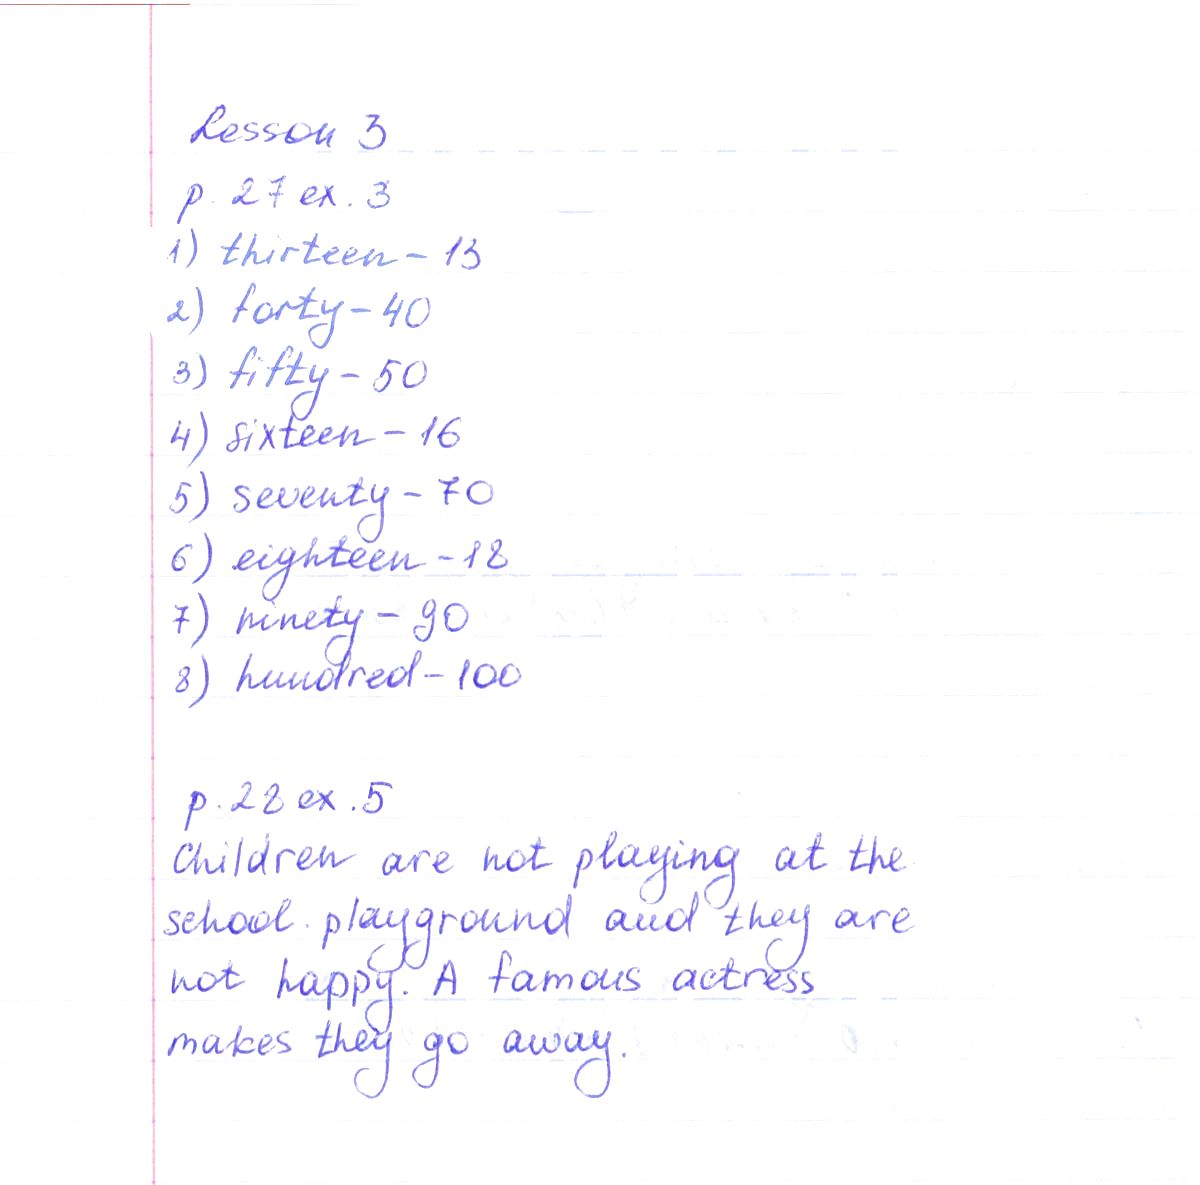 Lesson 3
p. 27 ex. 3
1) thirteen - 13
2) forty - 40
3) fifty - 50
4) sixteen - 16
5) seventy - 70
6) eighteen - 18
7) ninety - 90
8) hundred - 100
p. 28 ex. 5
Children are not playing at the
school playground and they are
not happy. A famous actress
makes they go away.